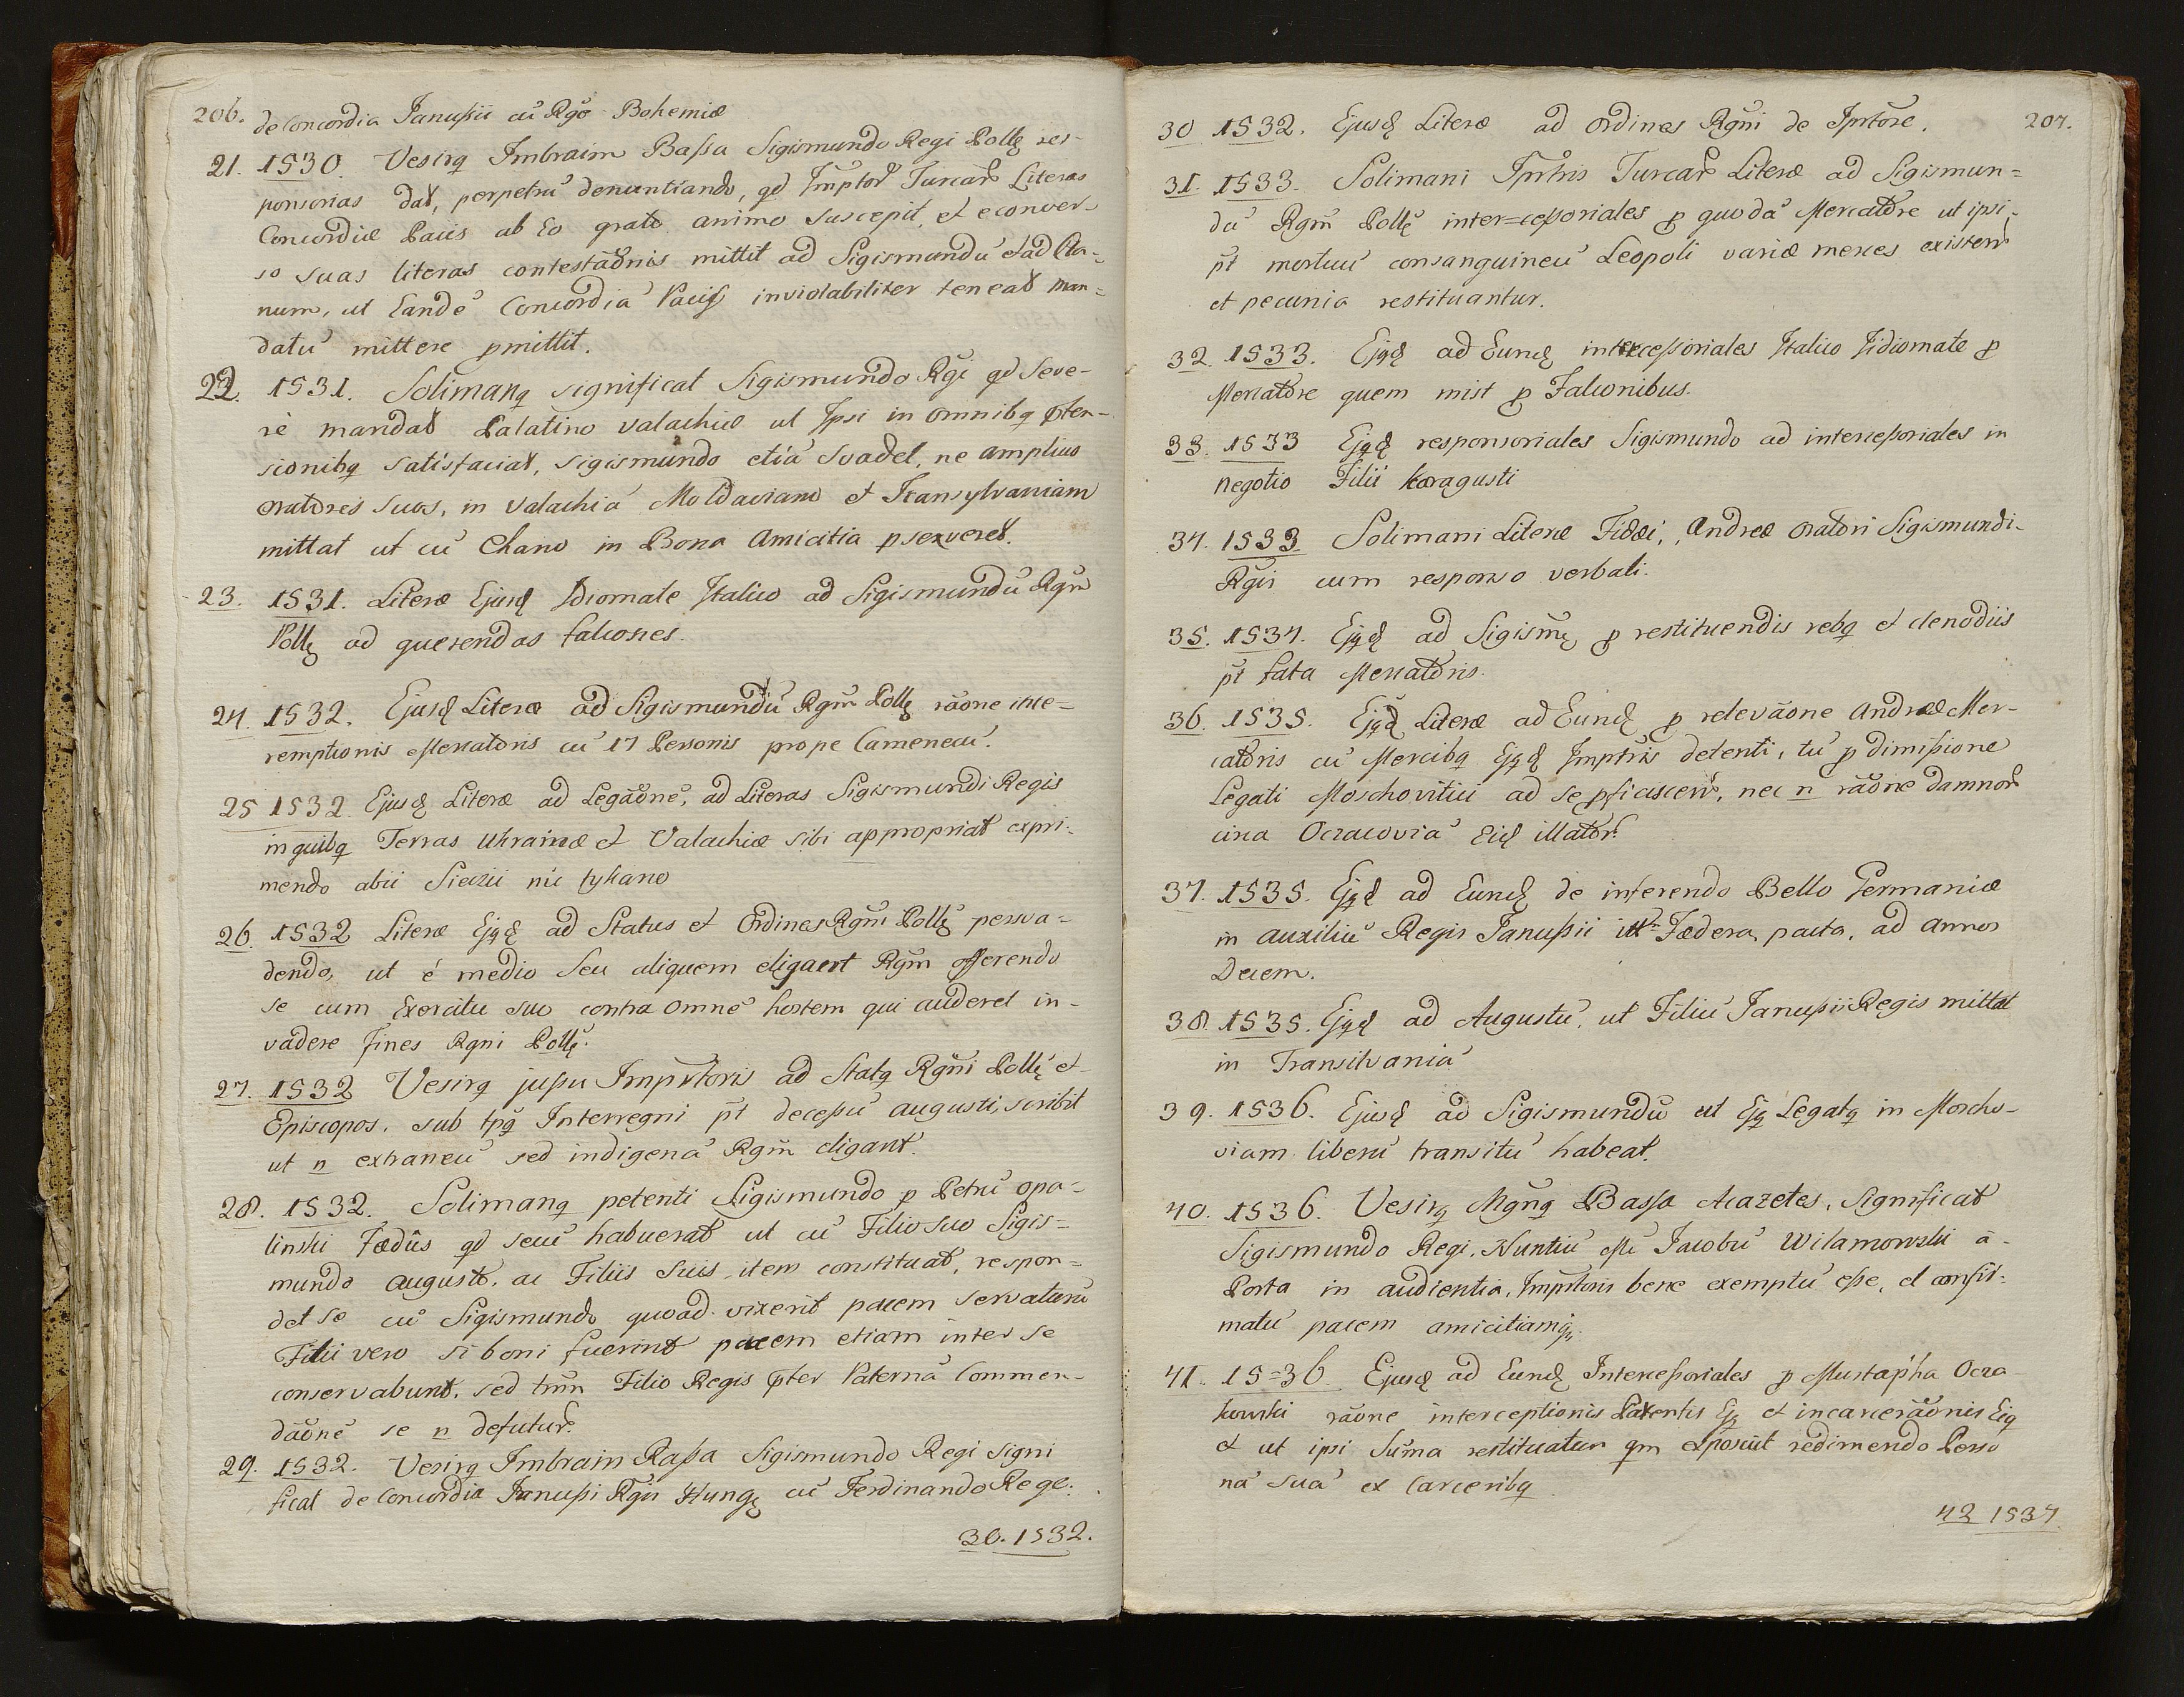 206.
de Concordia Janußii cũ Rge Bohemiæ
21. 1530. Vesirq Imbraim Bassa Sigismundo Regi Pollę res-
ponsorias dat, perpetuũ denuntiando, qd Imptor Turcar Literas
Concordiæ Pacis ab Eo grato animo suscepit, et econver-
so suas literas contestãonis mittit ad Sigismundũ et ad Cha-
num, ut Eandẽ Concordiã Pacis inviolabiliter teneat man-
datũ mittere pmittit.
22. 1531. Solimanq significat Sigismundo Rgi qd Seve-
rè mandat Palatino Valachiæ ut Ipsi in omnibq pten-
sionibq satisfaciat, Sigismundo etiã Svadet, ne amplius
oratores suos, in Valachiã Moldaviam et Transylvaniam
mittat ut cũ Chano in Bona Amicitia pseveret.
23. 1531. Literæ Ejusd Idiomate Italico ad Sigismundũ Rgm
Pollę ad querendas falcones.
24. 1532. Ejusd Literæ ad Sigismundũ Rgm Pollę rãone inte=
remptionis Mercatoris cũ 17 Personis prope Camenecũ.
25 1532. Ejusd Literæ ad Legãonẽ, ad Literas Sigismundi Regis
in quibq Terras Ukrainæ et Valachiæ sibi appropriat expri-
mendo abii Sieczii nic tykano
26. 1532 Literæ Ejqd ad Status et Ordines Rgni Pollę persva=
dendo, ut è medio Seu aliquem eligant Rgm offerendo
se cum Exercitu suo contra omnẽ hostem qui auderet in-
vadere fines Rgni Pollę.
27. 1532 Vesirq jußu Imprtoris ad Statq Rgni Pollę et
Episcopos. sub tpq Interregni pt deceßũ augusti, scribit
ut n extraneũ sed indigenã Rgm eligant.
28. 1532. Solimanq petenti Sigismundo p Petrũ opa-
linski Fœdus qd secũ habuerat ut cũ Filio suo Sigis=
mundo Augusto, ac Filiis Suis item constituat, respon=
det se cũ Sigismundo quoad vixerit pacem servaturũ
Filii vero si boni fuerint pacem etiam inter se
conservabunt, sed tmn Filio Regis pter Paternã Commen-
dãonẽ se n defuturũ.
29. 1532. Vesirq Imbraim Baßa Sigismundo Regi signi
ficat de Concordia Janußi Rgis Hungę cũ Ferdinando Rege.
30. 1532.
207.
30 1532. Ejusd Literæ ad Ordines Rgni de Iprtore.
31. 1533. Solimani Iprtris Turcar Literæ ad Sigismun=
dũ Rgm Pollę inter=ceßoriales p quodã Mercatore ut ipsi
pt mortuũ consanguineũ Leopoli variæ merces existen
et pecunia restituantur.
32. 1533. Ejqd ad Eund interceßoriales Italico Idiomate p
Mercatore quem mist p Falconibus.
33. 1533 Ejqd responsoriales Sigismundo ad interceßoriales in
negotio Filii Karagusti
34. 1533 Solimani Literæ Fidei, Andreæ oratori Sigismundi
Rgis cum responso verbali.
35. 1534. Ejqd ad Sigismę p restituendis rebq et clenodiis
pt fata Mercatoris.
36. 1535. Ejqd Literæ ad Eund p relevãone Andreæ Mer-
catoris cũ Mercibq Ejqd Imptris detenti, tũ p dimißione
Legati Moschovitici ad se pficiscen, nec n rãone damnor
circa Oczacoviã Eid illator.
37. 1535. Ejqd ad Eund de inferendo Bello Germaniæ
in auxiliũ Regis Janußii Fœdera pacta, ad annos
Decem.
38. 1535. Ejqd ad Augustũ, ut Filiũ Janußii Regis mittat
in Transilvaniã
39. 1536. Ejusd ad Sigismundũ ut Ejq Legatq in Moscho-
viam liberũ transitũ habeat.
40. 1536. Vesirq Mgnq Bassa Acazetes, Significat
Sigismundo Regi. Nuntiũ Jacobũ Wilamowski à
Porta in audientia, Imprtoris bene exemptũ eße, et confir=
matũ pacem amicitiamq.
41. 15=36. Ejusd ad Eund Interceßoriales p Mustapha Ocza
kowski rãone interceptionis Parentis Ejq et incarcerãonis Eiq
et ut ipsi Suma restituatur qm exposuit redimendo Perso
nã suã ex Carceribq
42 1537